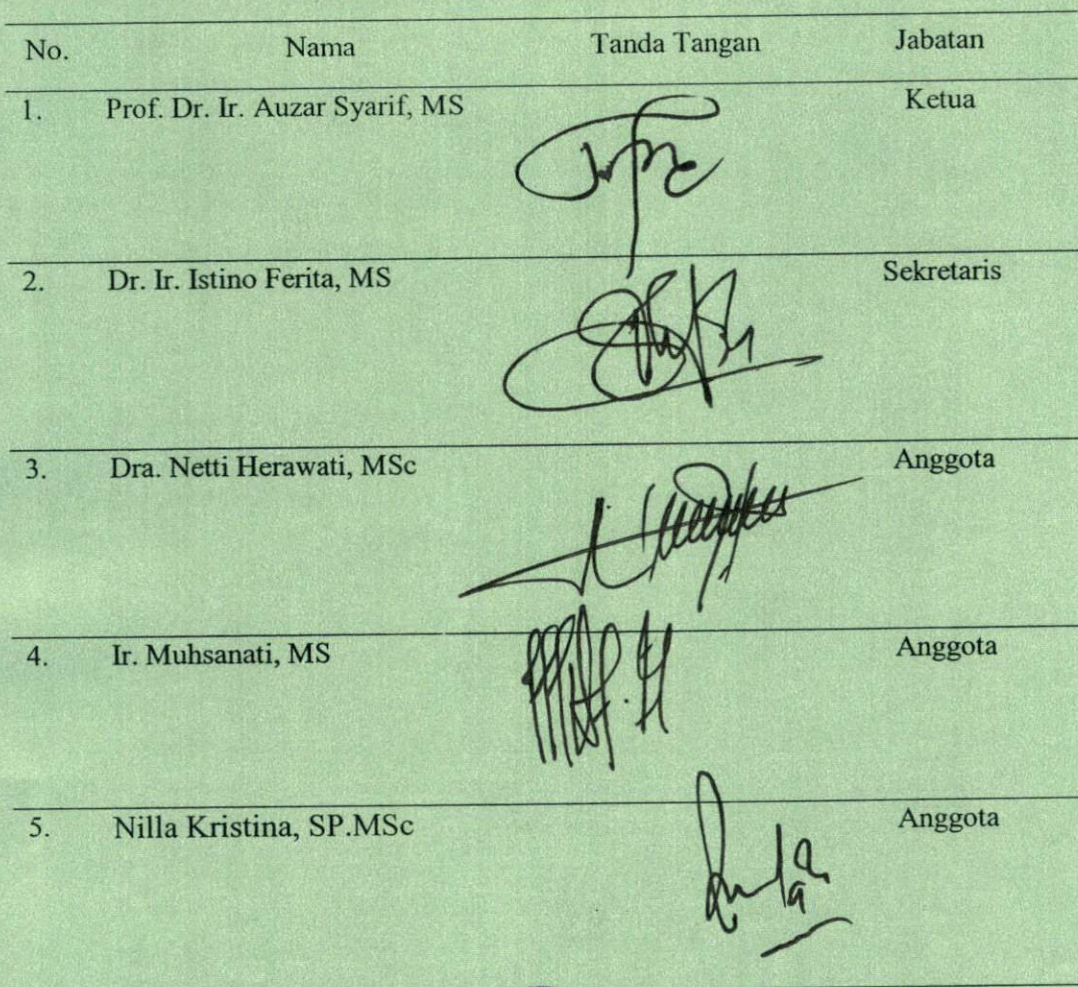 No. Nama Tanda Tangan Jabatan
1. Prof. Dr. Ir. Auzar Syarif, MS Ketua
2. Dr. Ir. Istino Ferita, MS Sekretaris
3. Dra. Netti Herawati, MSc Anggota
4. Ir. Muhsanati, MS Anggota
5. Nilla Kristina, SP.MSc Anggota